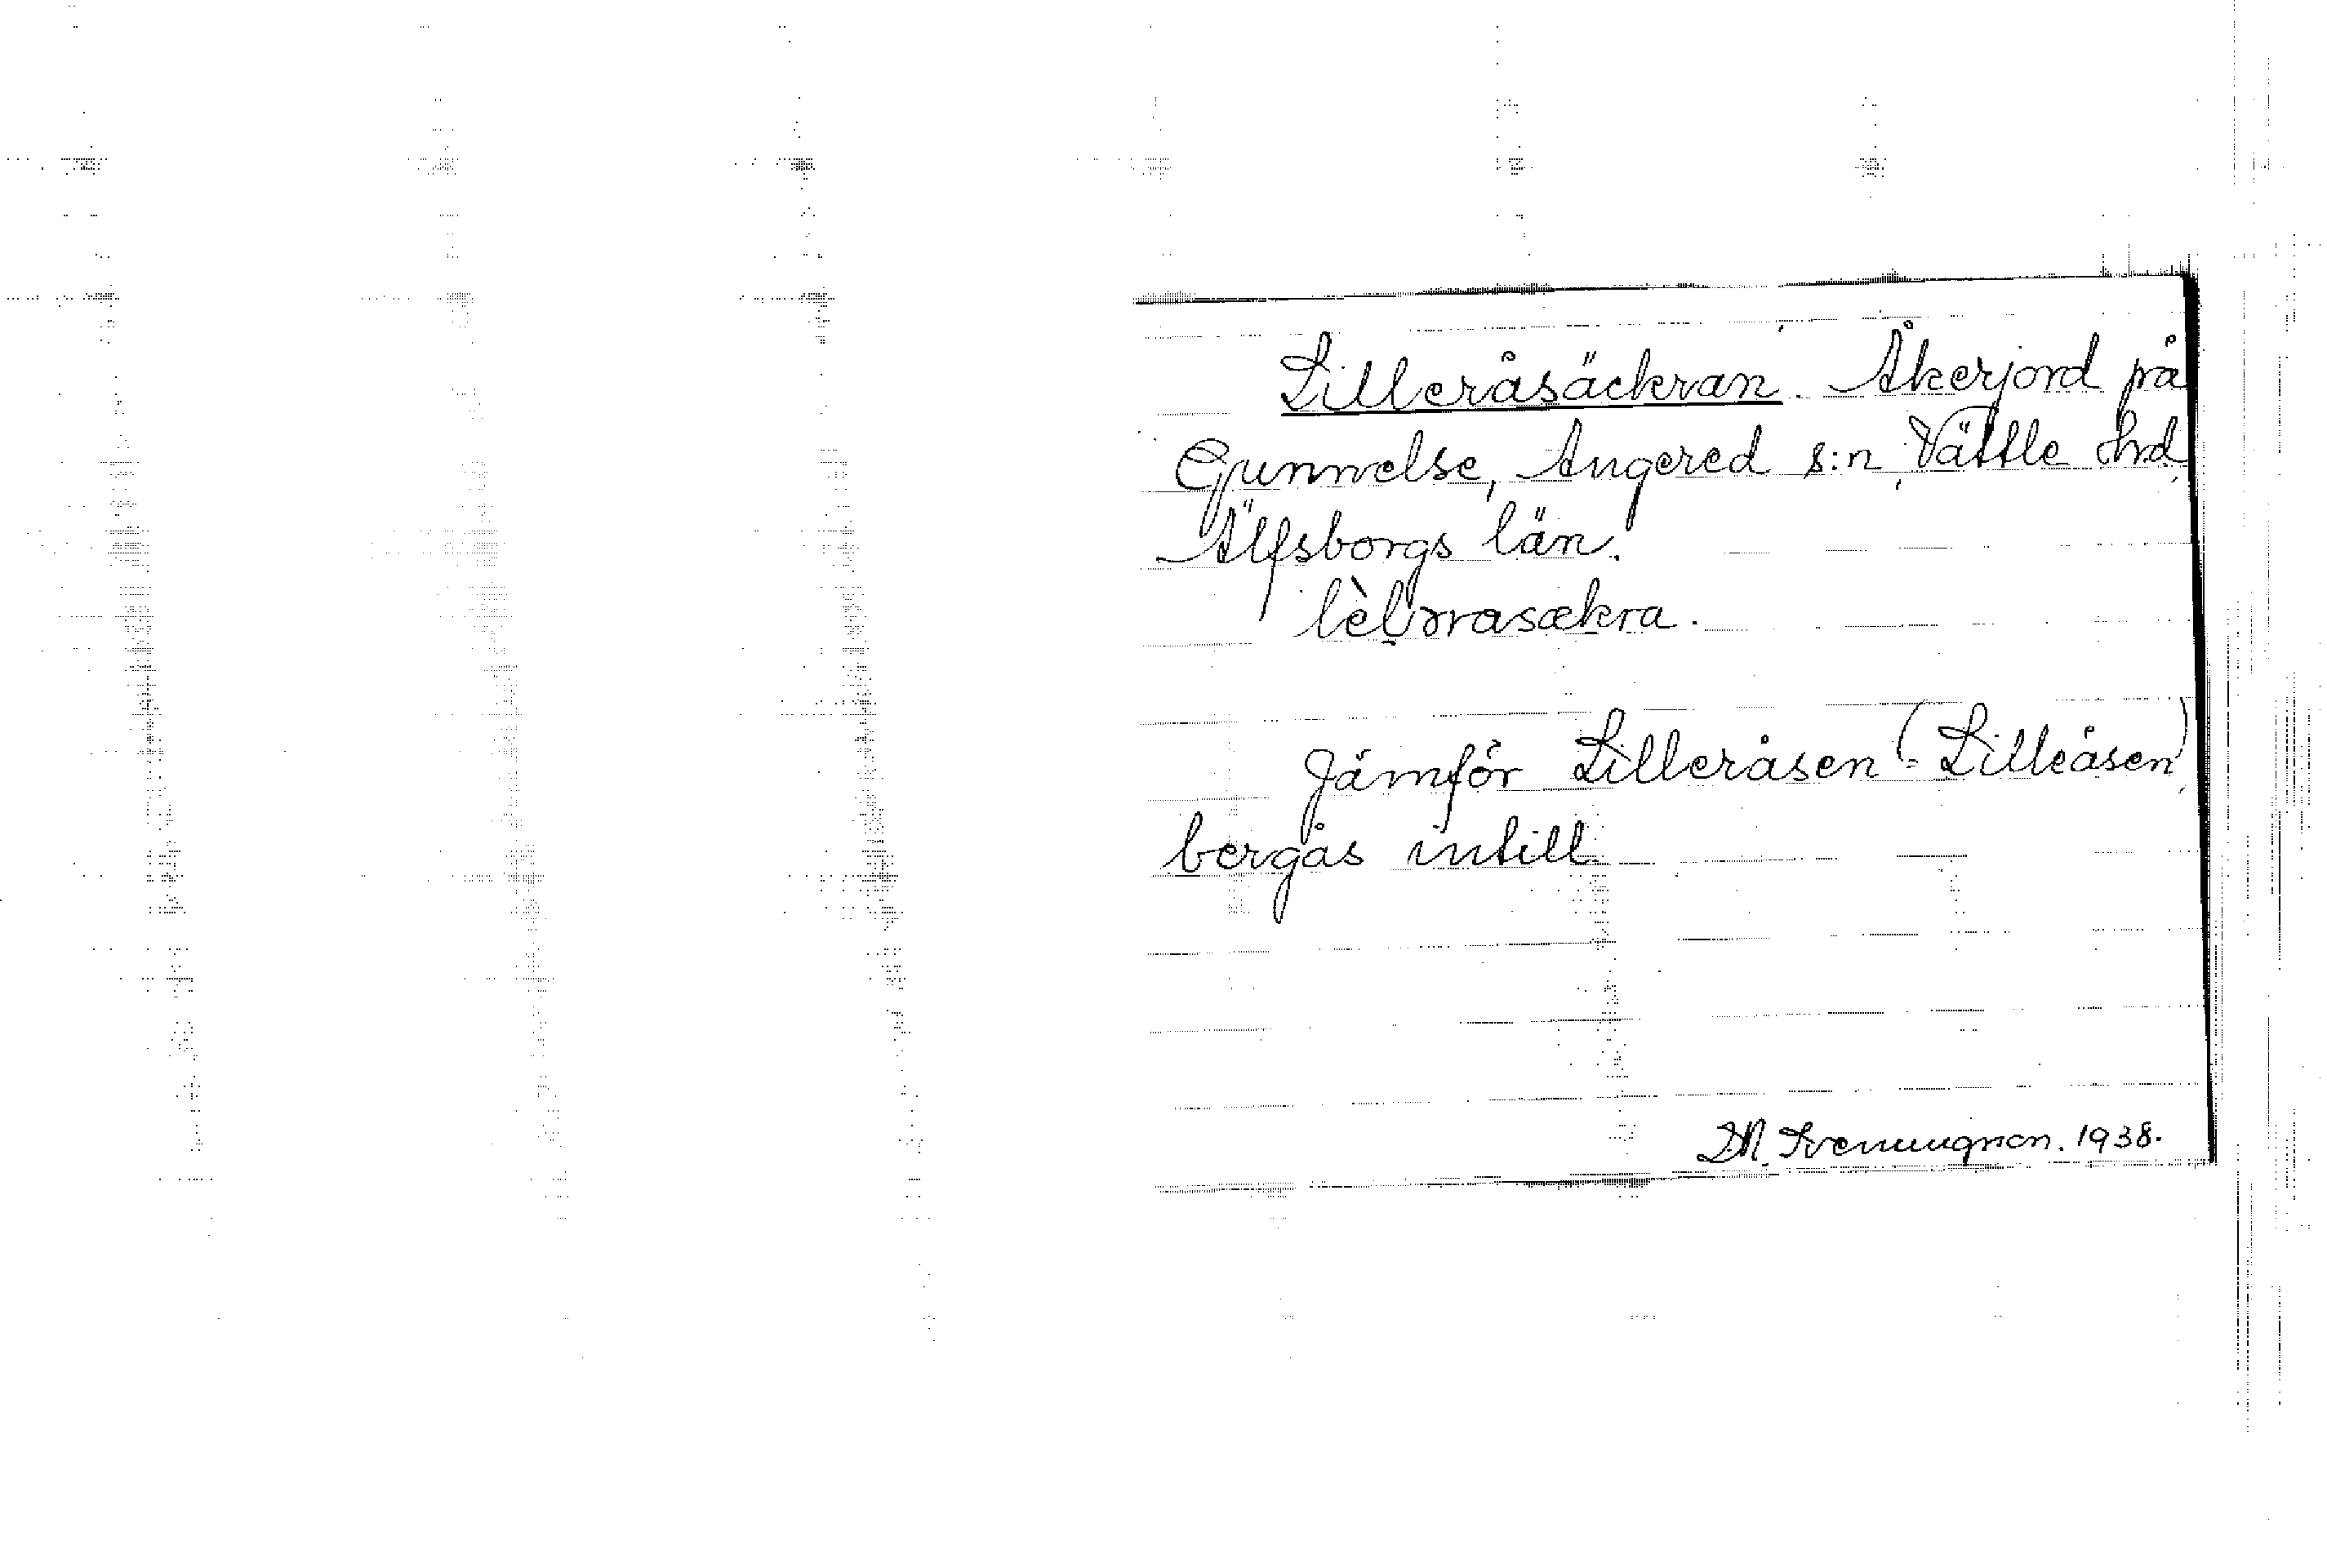 Lilleråsäckran. Åkerjord på
Gunnelse, Angered s:n, Vättle hrd,
Älfsborgs län.
lèlərasækra.
Jämför Lilleråsen (= Lilleåsen),
bergås intill.
1938.